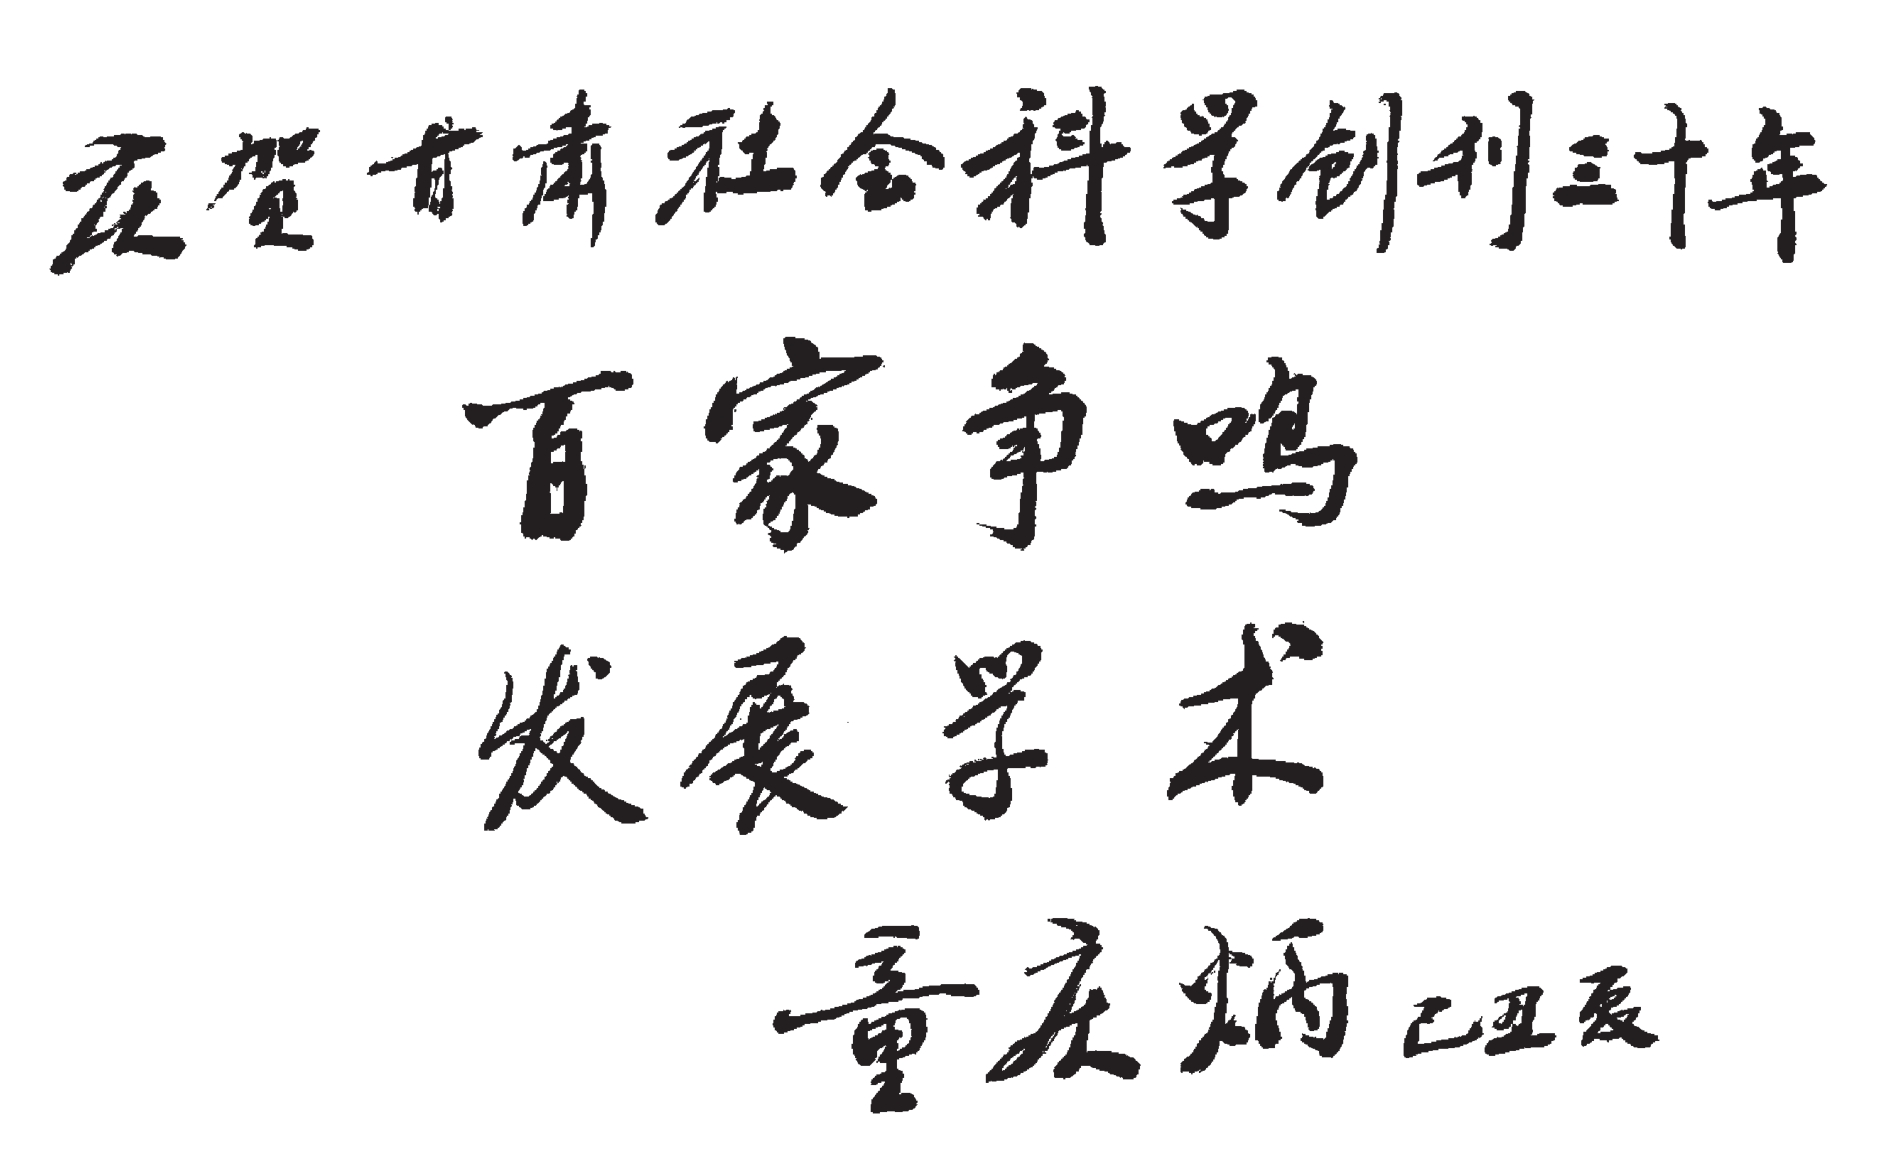 庆贺甘肃社会科学创刊三十年
百家争鸣
发展学术
童庆炳 己丑夏